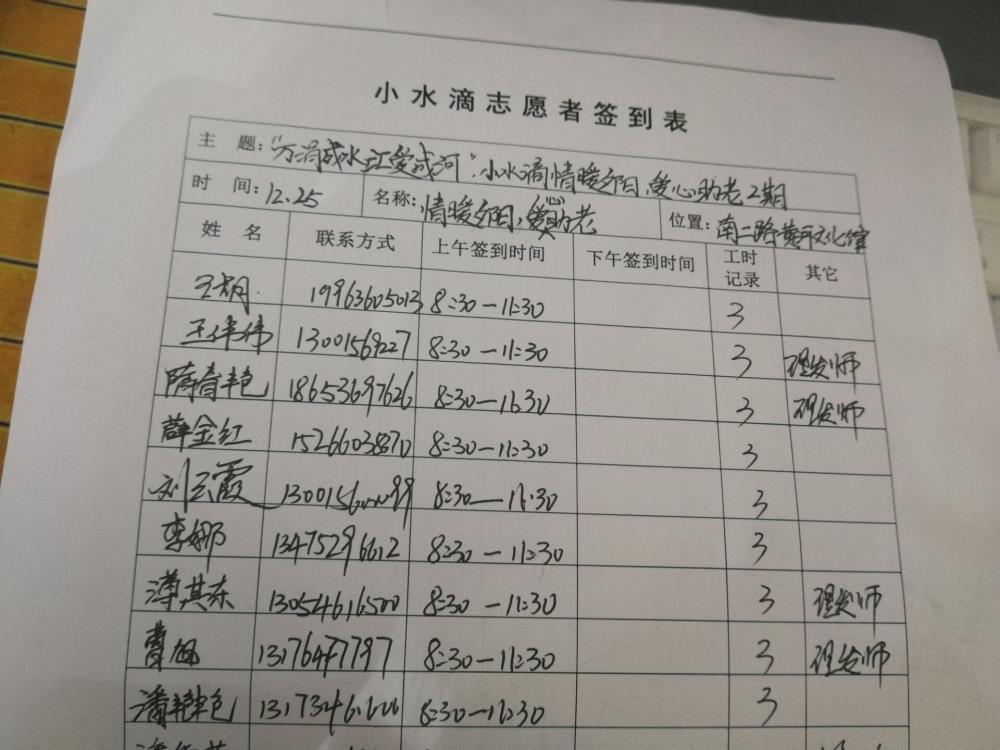 小水滴志愿者签到表
主 题：“万涓成水汇爱成河”小水滴情暖夕阳，爱心助老2期
时 间：12.25 名称：情暖夕阳，爱心助老 位置：南二路黄河文化馆
姓 名 联系方式 上午签到时间 下午签到时间 工时记录 其它
王胡 19963605013 8:30—11:30 3
王伟伟 13001569227 8:30—11:30 3 理发师
隋春艳 18653697626 8:30—11:30 3 理发师
薛金红 15266038870 8:30—11:30 3
刘云霞 8:30—11:30 3
李娜 13475296612 8:30—11:30 3
薄其东 13054616500 8:30—11:30 3 理发师
曹旭 13176477797 8:30—11:30 3 理发师
潘艳艳 8:30—11:30 3